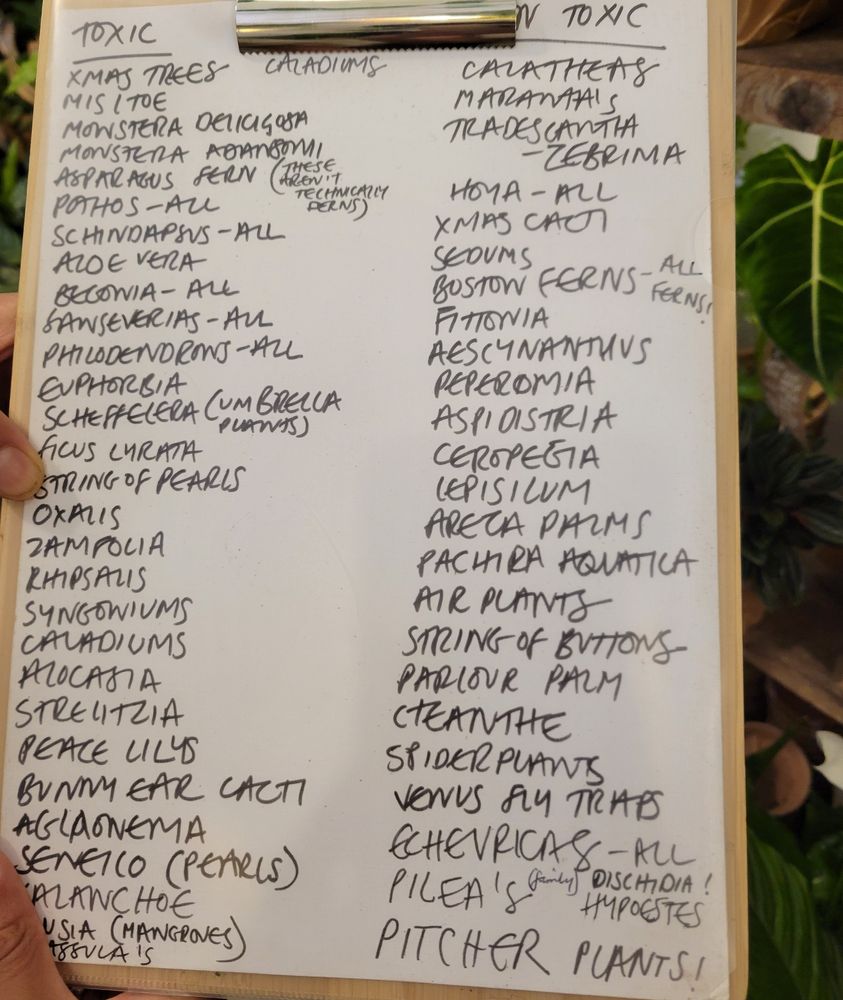 TOXIC
XMAS TREES CALADIUMS
MISLTOE
MONSTERA DELICIGOSA
MONSTERA ADANSOMI
ASPARAGUS FERN (THESE
AREN'T
TECHNICALLY
FERNS)
POTHOS-ALL
SCHINDAPSUS-ALL
ALOE VERA
BEGONIA-ALL
SANSEVERIAS-ALL
PHILODENDRONS-ALL
EUPHORBIA
SCHEFFELERA (UMBRELLA
PLANTS)
FICUS LYRATA
STRING OF PEARLS
OXALIS
ZAMFOLIA
RHIPSALIS
SYNGONIUMS
CALADIUMS
ALOCASIA
STRELITZIA
PEACE LILYS
BUNNY EAR CACTI
AGLAONEMA
SENEICO (PEARLS)
ALANCHOE
USIA (MANGROVES)
ASSULA'S
N TOXIC
CALATHEAS
MARANTA'S
TRADESCANTIA
-ZEBRIMA
HOYA-ALL
XMAS CACTI
SEDUMS
BOSTON FERNS-ALL
FERNS!
FITTONIA
AESCYNANTHUS
PEPEROMIA
ASPIDISTRIA
CEROPEGIA
LEPISILUM
ARECA PALMS
PACHIRA AQUATICA
AIR PLANTS
STRING OF BUTTONS
PARLOUR PALM
CTEANTHE
SPIDER PLANTS
VENUS FLY TRAPS
ECHEVRICAS-ALL
PILEA'S (family) DISCHIDIA!
HYPOESTES
PITCHER PLANTS!